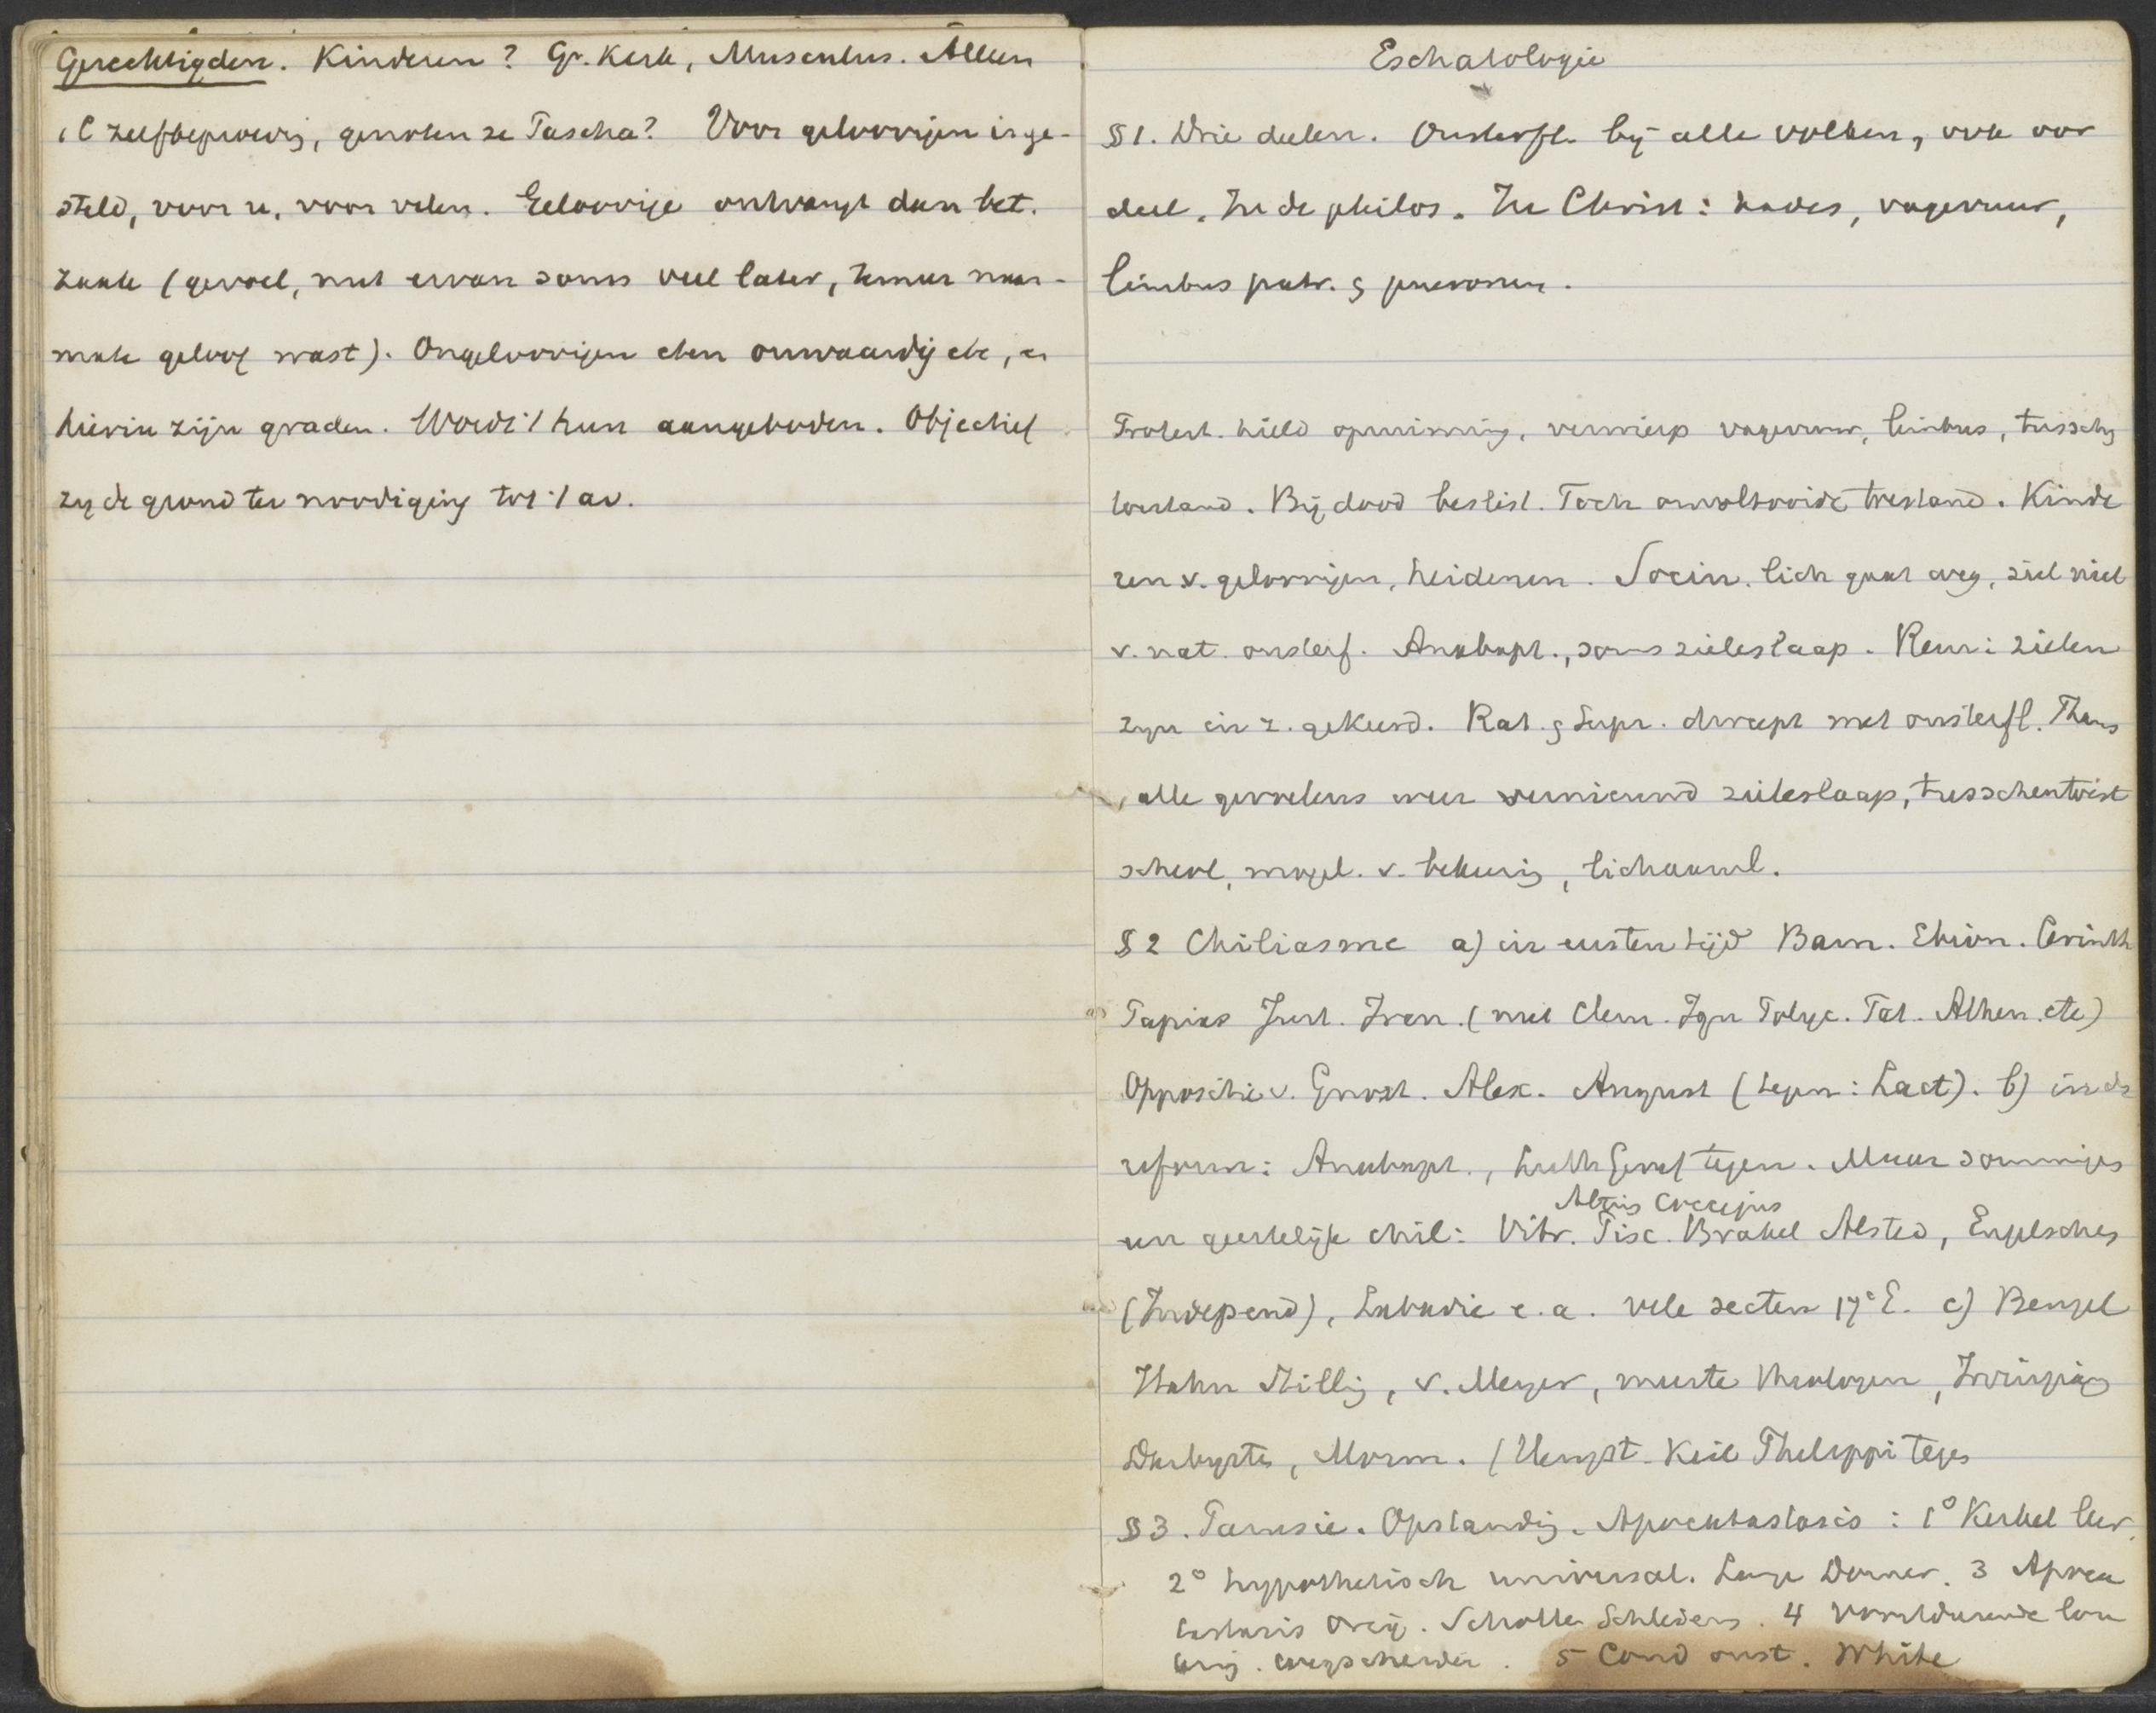 Gerechtigden. Kinderen? Gr. Kerk, Musculus. Alleen
i C zelfbeproevig, genoten ze Pascha? Voor geloovigen is ge-
steld, voor u, voor velen. Geloovige ontvangt dan bet.
zaak (gevoel, nut ervan soms veel later, temeer naar-
mate geloof wast). Ongeloovigen eten onwaardig etc, en
hierin zijn graden. Wordt hun aangeboden. Objectief
zij de grond ter noodiging tot 't av.
Eschatologie
§ 1. Drie deelen. Onsterfl. bij alle volken, ook oor
deel. In de philos. In Christ: hades, vagevuur,
limbus patr. & puerorum.
Protest. hield opruiming, verwierp vagevuur, limbus, tusschen
toestand. Bij dood beslist. Toch onvoltooide toestand. Kinde
ren v. geloovigen, heidenen. Socin. lich gaat weg, ziel niet
v. nat. onsterf. Anabapt., soms zieleslaap. Rem: zielen
zijn in z. gekeerd. Rat. & Supr. dweept met onsterfl. Thans
alle gevoelens weer vernieuwd zieleslaap, tusschentoest
scheol, mogel. v. bekeerig, lichaaml.
§ 2 Chiliasme a) in eersten tijd Barn. Ebion. Cerinth
Papias Just. Iren. (niet Clem. Ign Polyc. Tat. Athen. etc)
Oppositie v. Gnost. Alex. August (tegen: Lact). b) in de
reform: Anabapt., Luth Geref tegen. Maar sommiges
Alting Coccejus
een geestelijk chil: Vitr. Pisc. Brakel Alsted, Engelsches
(Independ), Labadie e. a. vele secten 17e E. c) Bengel
Hahn Stilling, v. Meyer, meeste theologen, Irvingian
Darbyste, Morm. (Hengst. Keil Philippi tegen
§ 3. Parusie. Opstandig. Apocatastasis: 1° Kerkel leer.
2° hypothetisch universal. Lange Dorner. 3 Apoca
tastasis Orig. Scholten Schleierm. 4 Voortdurende lou
tering. Wegscheider. 5 Cond onst. White